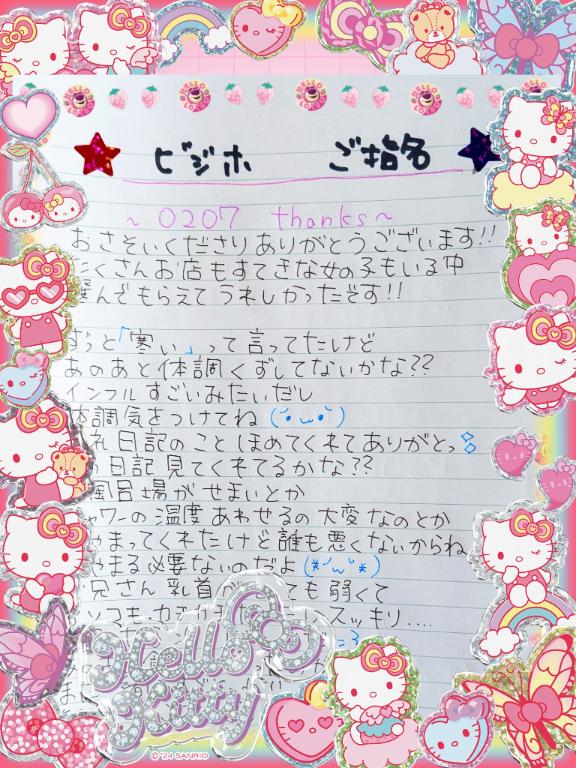 ビジホ ご指名
~0207 thanks~
おさそいくださりありがとうございます!!
くさんお店もすてきな女の子もいる中
んでもらえてうれしかったです!!
っと「寒い」って言ってたけど
あのあと体調くずしてないかな??
インフルすごいみたいだし
体調気をつけてね
日記のことほめてくれてありがとっ
日記見てくれてるかな??
風呂場がせまいとか
ャワーの温度あわせるの大変なのとか
やまってくれたけど誰も悪くないからね
やまる必要ないのだよ
兄さん乳首 ても弱くて
スッキリ....
Hello Kitty
©'24 SANRIO